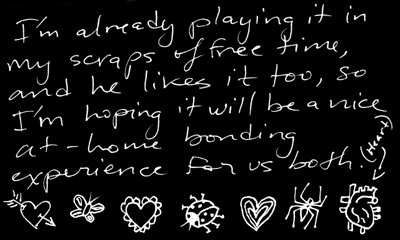 I'm already playing it in
my scraps of free time,
and he likes it too, so
I'm hoping it will be a nice
at-home bonding
experience for us both.
(Heart)